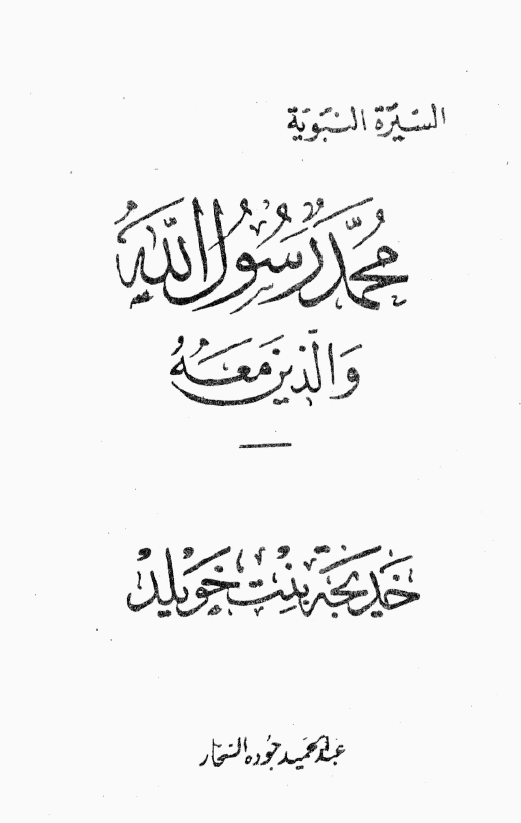 السيرة النبوية
محمد رسول الله
والذين معه
خديجة بنت خويلد
عبد الحميد جوده السحار